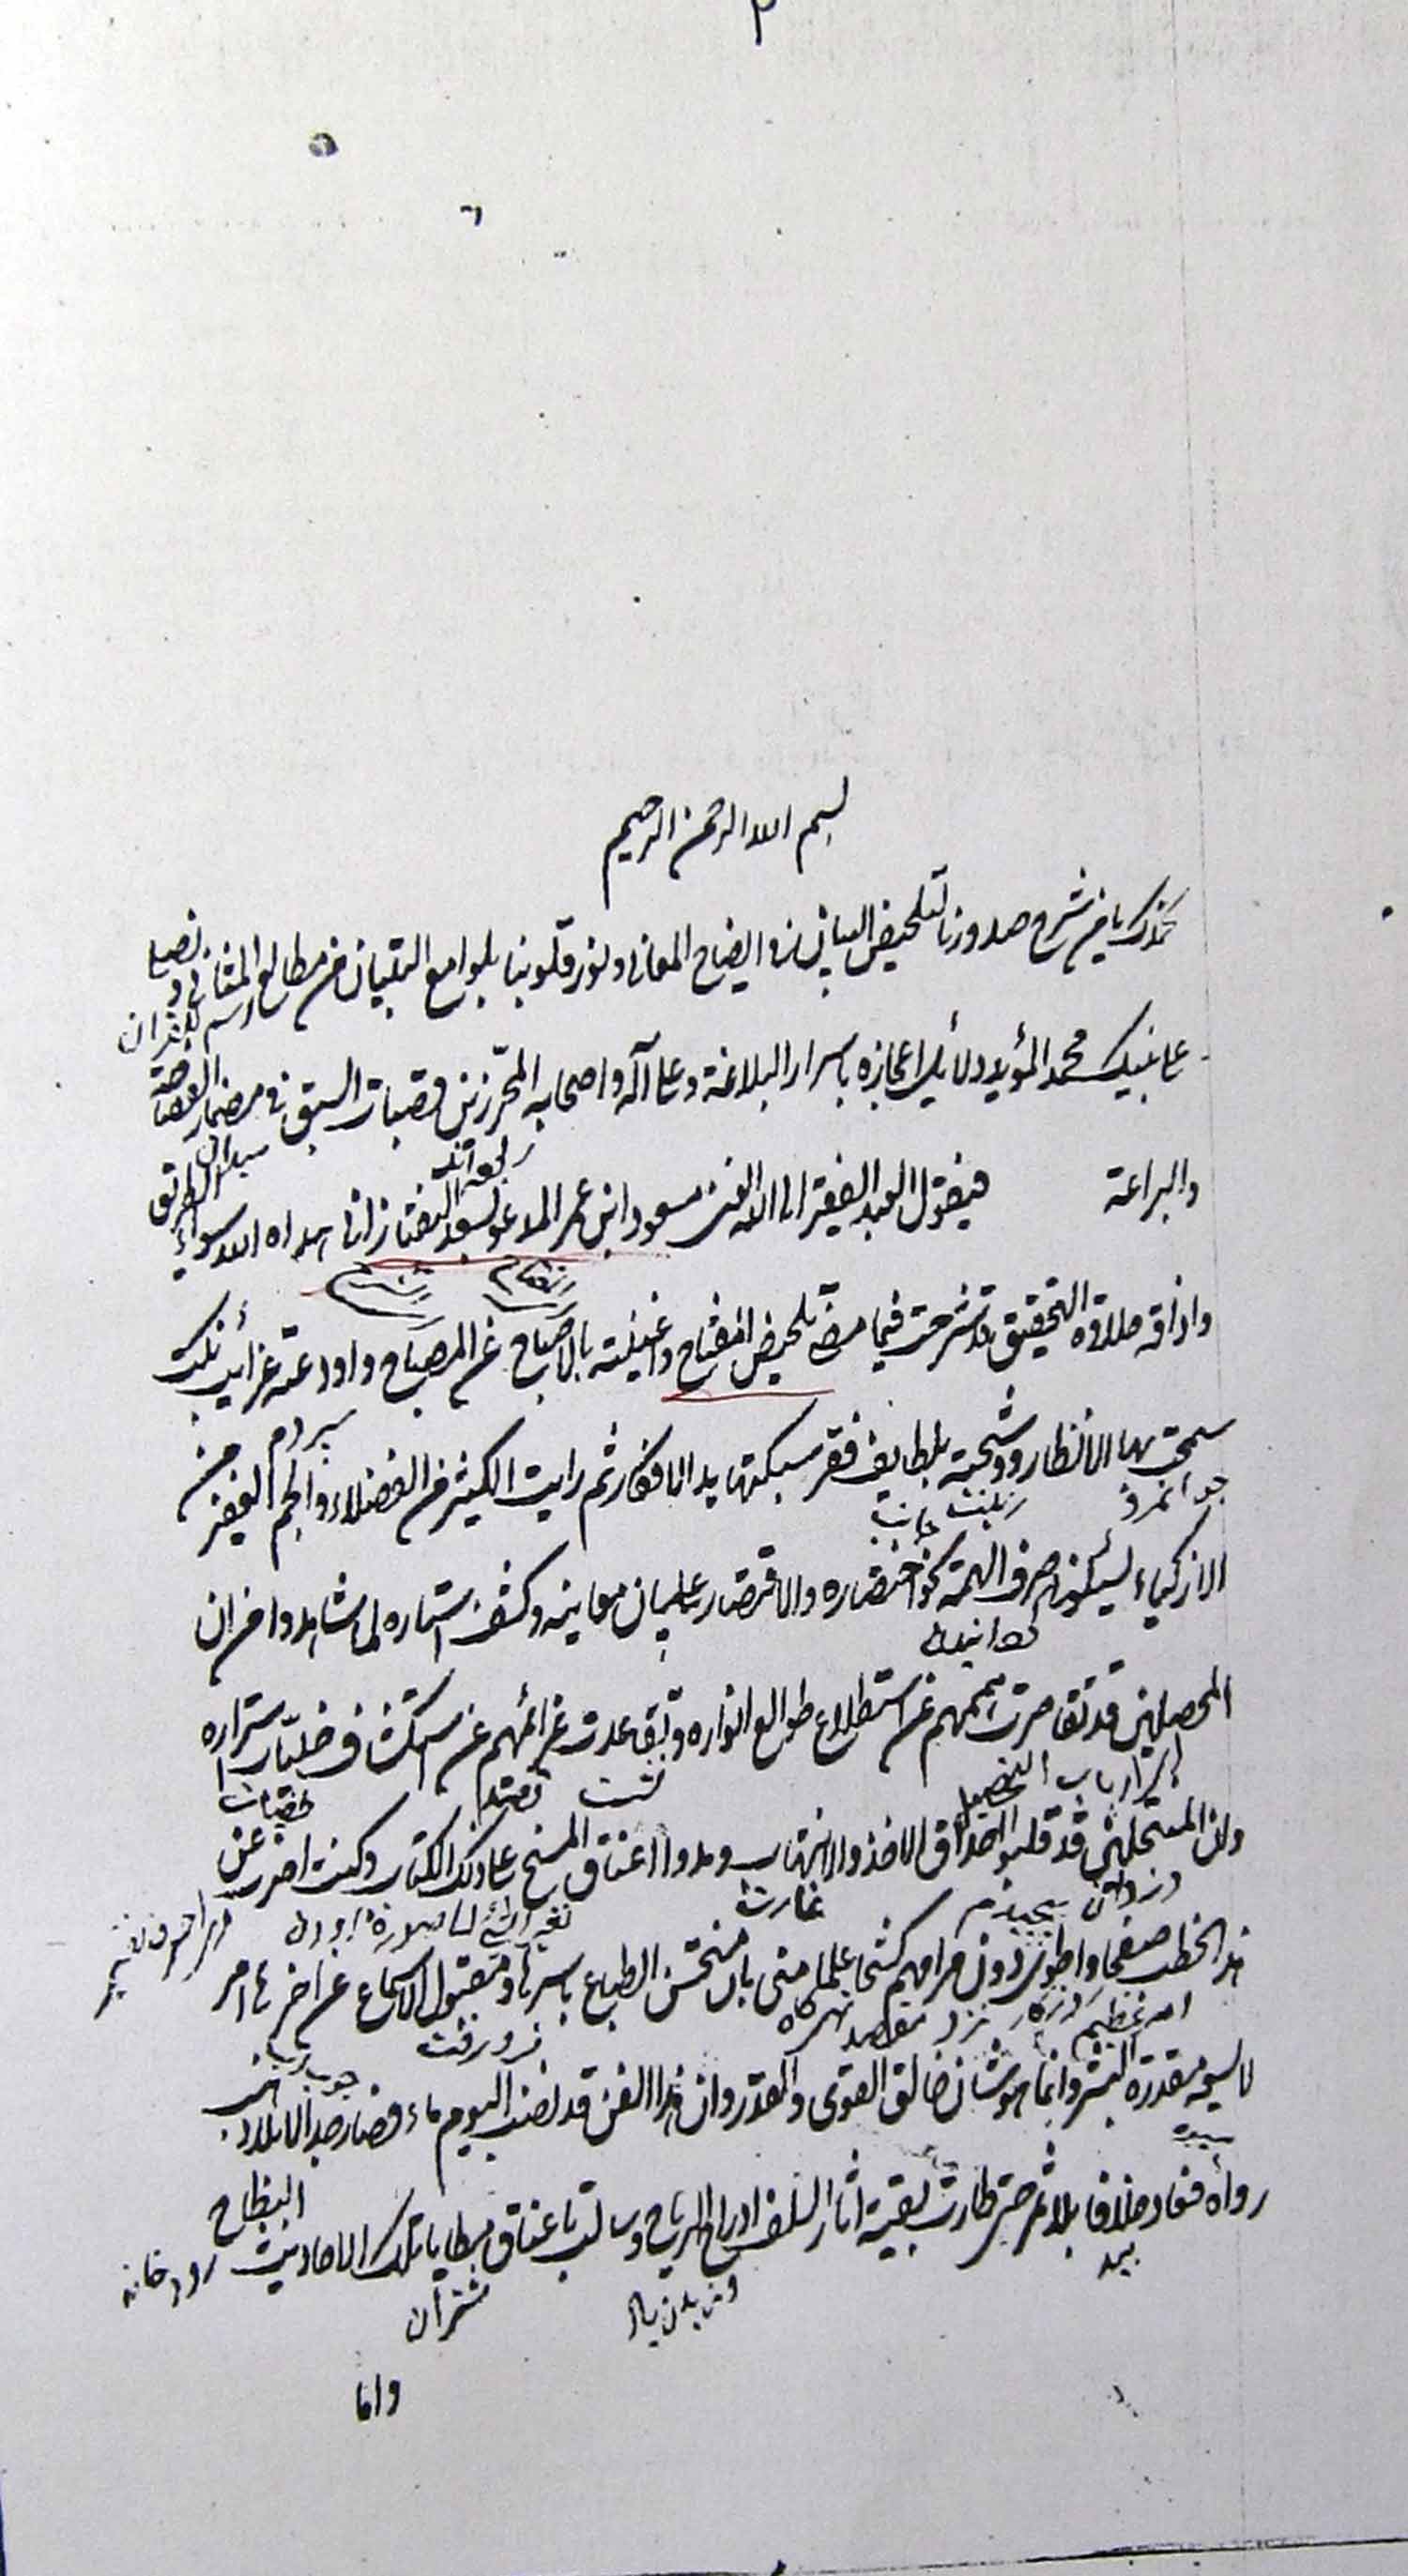 ٢
بسم الله الرحمن الرحيم
نحمدك يا من شرح صدورنا لتلخيص البيان في ايضاح المعاني و نور قلوبنا بلوامع التبيان من مطالع المثاني و نصلي
على نبيك محمد المؤيد دلائل اعجازه باسرار البلاغة و على آله و اصحابه المحرزين قصبات السبق في مضمار الفصاحة
والبراعة فيقول العبد الفقير الى الله الغني مسعود ابن عمر المدعو بسعد التفتازاني هداه الله سواء الطريق
واذاقه حلاوة التحقيق قد شرحت فيما مضى تلخيص المفتاح واغنيته بالاصباح عن المصباح واودعته غرائب نكت
سمحت بها الانظار ووشحته بلطايف فقر سبكتها يد الافكار ثم رايت الكثير من الفضلاء والجم الغفير من
الاذكياء يسئلونني صرف الهمة نحو اختصاره والاقتصار على بيان معانيه وكشف استاره لما شاهدوا من ان
المحصلين قد تقاصرت هممهم عن استطلاع طوالع انواره وتقاعدت عزائمهم عن استكشاف خبيات اسراره
وان المنتحلين قد قلبوا احداق الاخذ والانتهاب ومدوا اعناق المسخ على ذلك الكتاب وكنت اضرب عن
هذا الخطب صفحا واطوي دون مرامهم كشحا علما مني بان مستحسن الطبايع باسرها ومقبول الاسماع عن اخرها امر
لا يسعه مقدرة البشر وانما هو شان خالق القوى والقدر وان هذا الفن قد نضب اليوم ماءه فصار جدالا بلا اثر وذهب
رواءه فعاد خلافا بلا ثمر حتى طارت بقية اثار السلف ادراج الرياح وسالت باعناق مطايا تلك الاحاديث البطاح
شتران
رودخانه
واما